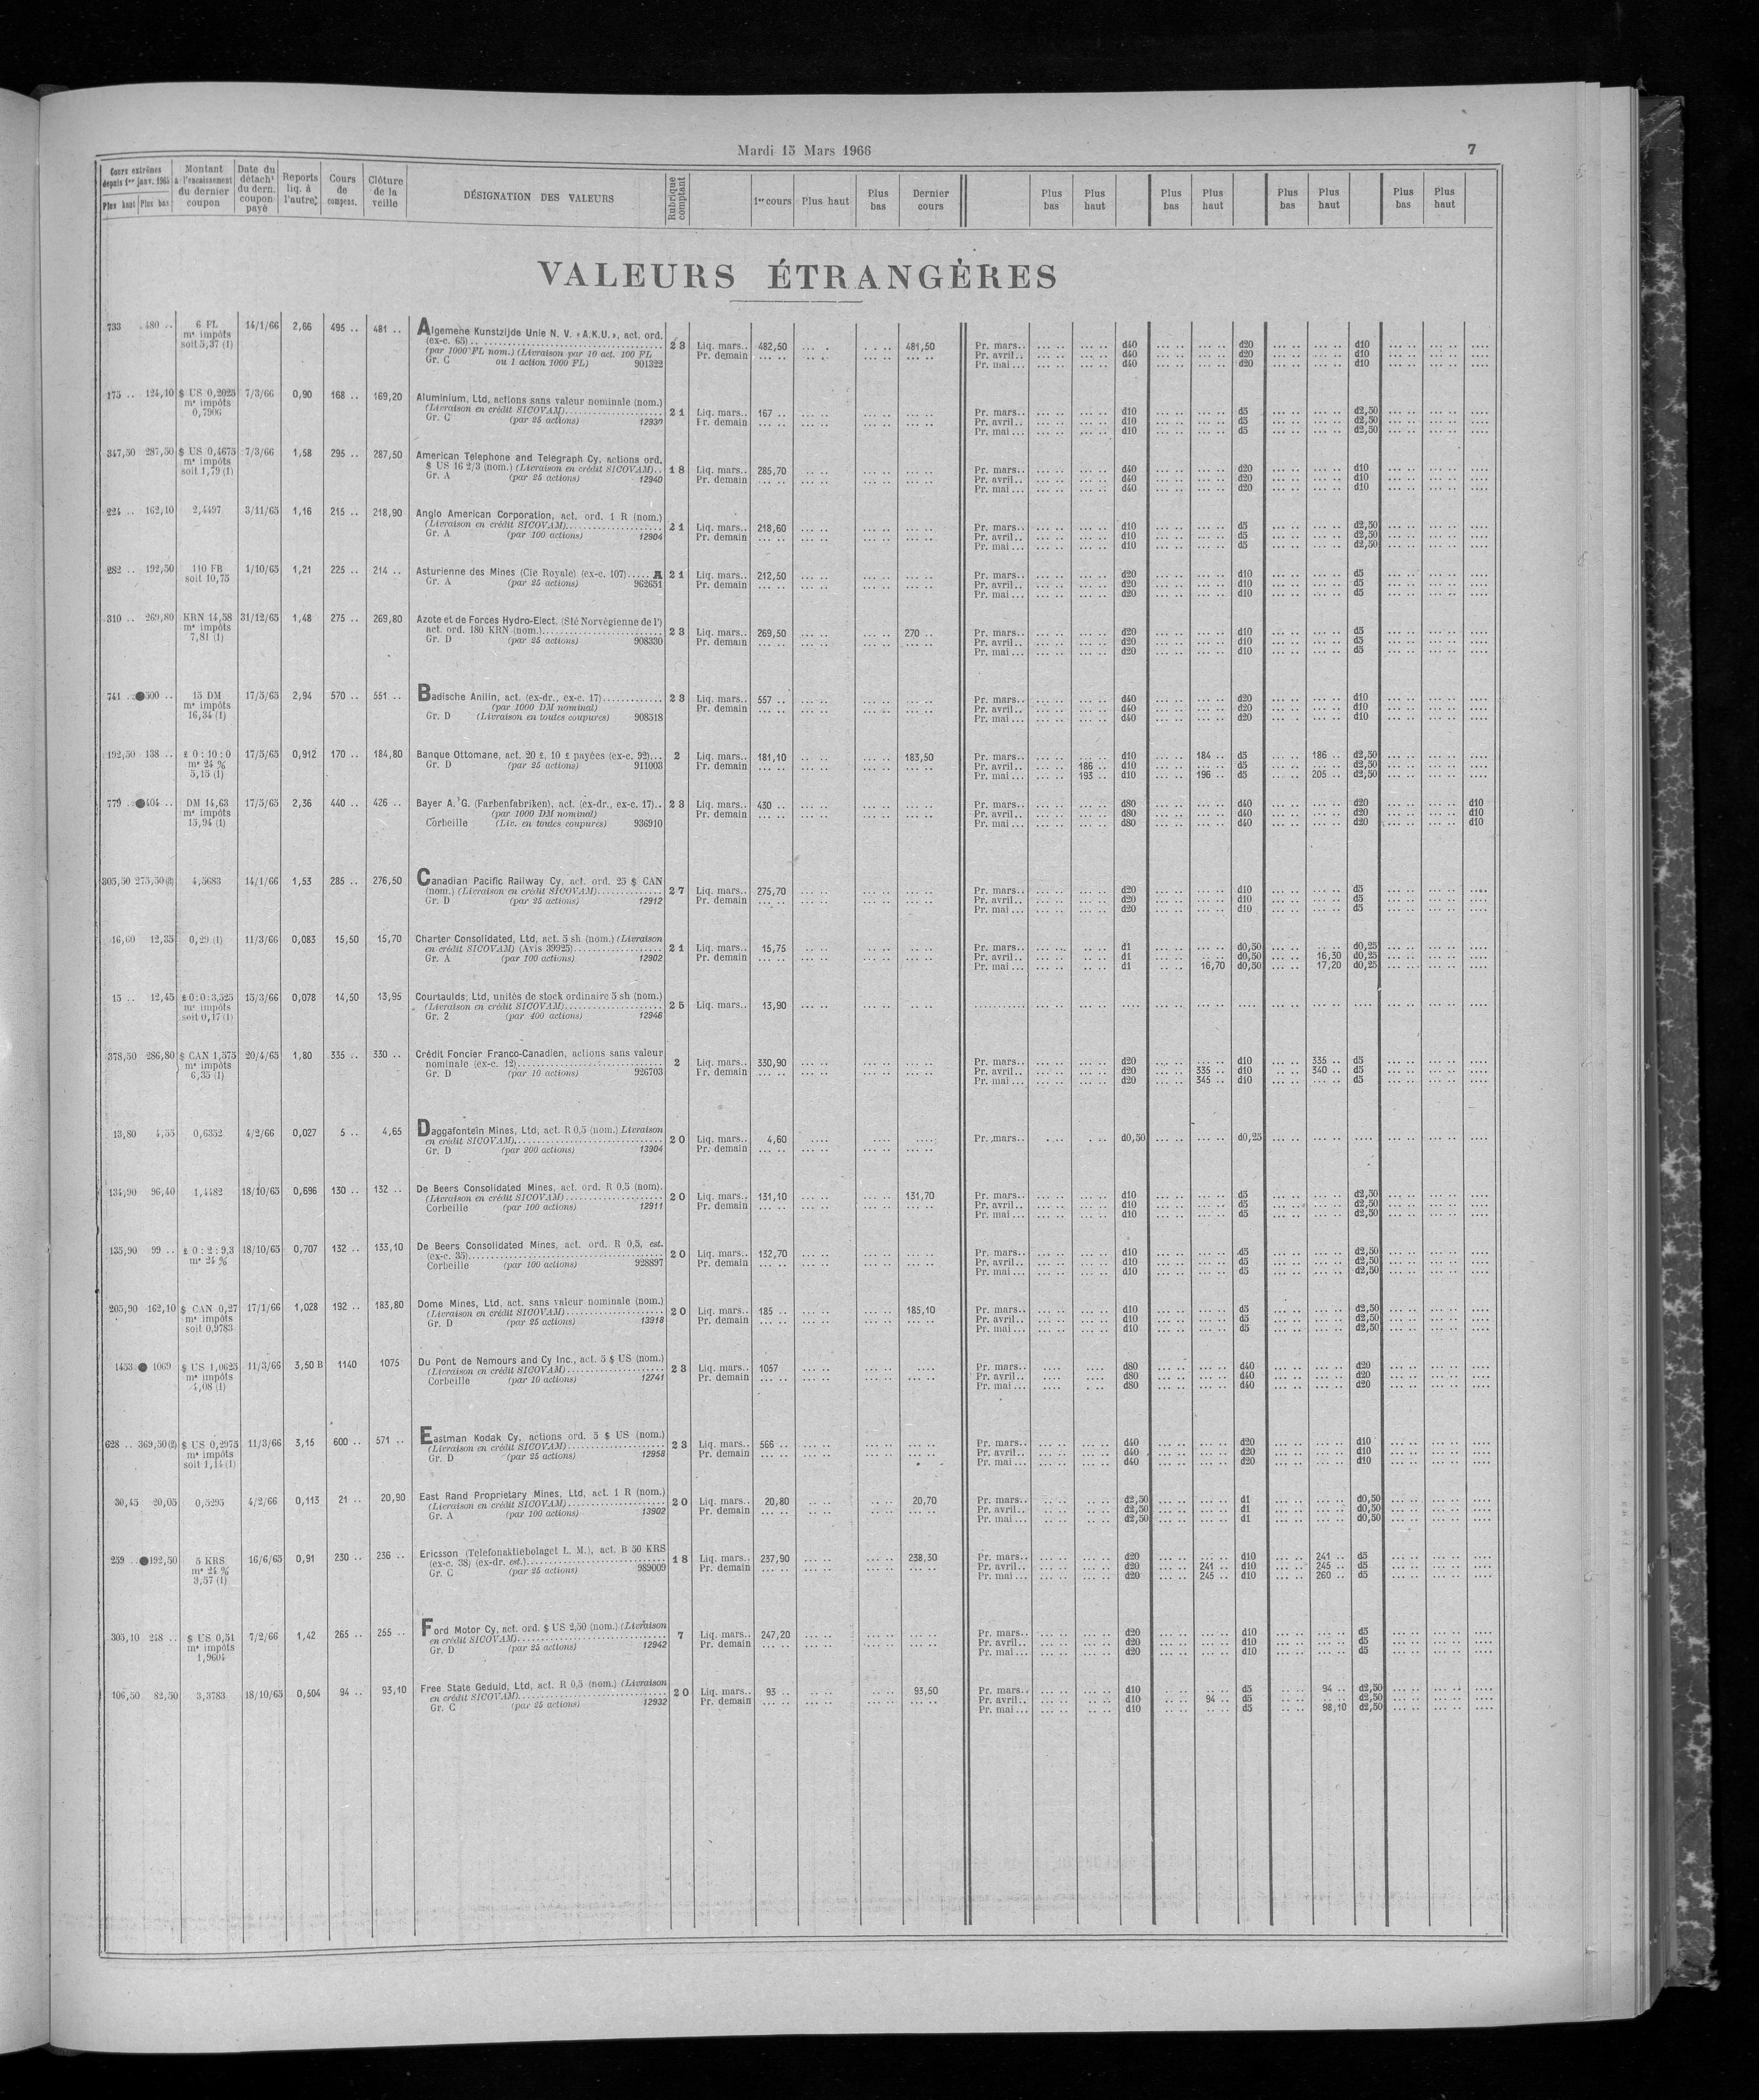 Mardi 15 Mars 1966
7
Cours extrêmes depuis 1er janv. 1965 Plus haut Plus bas
Montant à l'encaissement du dernier coupon
Date du détacht du dern. coupon payé
Reports liq. à l'autre
Cours de compens.
Clôture de la veille
DÉSIGNATION DES VALEURS
Rubrique comptant
1er cours Plus haut Plus bas Dernier cours
Plus bas Plus haut Plus bas Plus haut Plus bas Plus haut Plus bas Plus haut
VALEURS ÉTRANGÈRES
733 480 .. 6 FL 14/1/66 2,66 495 .. 481 .. Algemene Kunstzijde Unie N. V. « A.K.U. », act. ord.
me impôts (ex-c. 65) 23 Liq. mars.. 482,50 481,50 Pr. mars.. d40 d20 d10
soit 5,37 (1) (par 1000 FL nom.) (Livraison par 10 act. 100 FL Pr. demain Pr. avril.. d40 d20 d10
Gr. C ou 1 action 1000 FL) 901322 Pr. mai... d40 d20 d10
175 .. 124,10 $ US 0,2025 7/3/66 0,90 168 .. 169,20 Aluminium, Ltd, actions sans valeur nominale (nom.)
me impôts (Livraison en crédit SICOVAM) 21 Liq. mars.. 167 .. Pr. mars.. d10 d5 d2,50
0,7906 Gr. C (par 25 actions) 12930 Pr. demain Pr. avril.. d10 d5 d2,50
Pr. mai... d10 d5 d2,50
347,50 287,50 $ US 0,4675 7/3/66 1,58 295 .. 287,50 American Telephone and Telegraph Cy, actions ord.
me impôts $ US 16 2/3 (nom.) (Livraison en crédit SICOVAM).. 18 Liq. mars.. 285,70 Pr. mars.. d40 d20 d10
soit 1,79 (1) Gr. A (par 25 actions) 12940 Pr. demain Pr. avril.. d40 d20 d10
Pr. mai... d40 d20 d10
224 .. 162,10 2,4497 3/11/65 1,16 215 .. 218,90 Anglo American Corporation, act. ord. 1 R (nom.)
(Livraison en crédit SICOVAM) 21 Liq. mars.. 218,60 Pr. mars.. d10 d5 d2,50
Gr. A (par 100 actions) 12904 Pr. demain Pr. avril.. d10 d5 d2,50
Pr. mai... d10 d5 d2,50
282 .. 192,50 110 FB 1/10/65 1,21 225 .. 214 .. Asturienne des Mines (Cie Royale) (ex-c. 107)..... A 21 Liq. mars.. 212,50 Pr. mars.. d20 d10 d5
soit 10,75 Gr. A (par 25 actions) 962651 Pr. demain Pr. avril.. d20 d10 d5
Pr. mai... d20 d10 d5
310 .. 269,80 KRN 14,58 31/12/65 1,48 275 .. 269,80 Azote et de Forces Hydro-Elect. (Sté Norvégienne de l')
me impôts act. ord. 180 KRN (nom.) 23 Liq. mars.. 269,50 270 .. Pr. mars.. d20 d10 d5
7,81 (1) Gr. D (par 25 actions) 908330 Pr. demain Pr. avril.. d20 d10 d5
Pr. mai... d20 d10 d5
741 .. ●500 .. 15 DM 17/5/65 2,94 570 .. 551 .. Badische Anilin, act. (ex-dr., ex-c. 17) 23 Liq. mars.. 557 .. Pr. mars.. d40 d20 d10
me impôts (par 1000 DM nominal) Pr. demain Pr. avril.. d40 d20 d10
16,34 (1) Gr. D (Livraison en toutes coupures) 908518 Pr. mai... d40 d20 d10
192,50 138 .. £ 0 : 10 : 0 17/5/65 0,912 170 .. 184,80 Banque Ottomane, act. 20 £, 10 £ payées (ex-c. 92)... 2 Liq. mars.. 181,10 183,50 Pr. mars.. d10 184 .. d5 186 .. d2,50
me 24 % Gr. D (par 25 actions) 911003 Pr. demain Pr. avril.. 186 .. d10 d5 d2,50
5,15 (1) Pr. mai... 193 .. d10 196 .. d5 205 .. d2,50
779 .. ●404 .. DM 14,63 17/5/65 2,36 440 .. 426 .. Bayer A. G. (Farbenfabriken), act. (ex-dr., ex-c. 17).. 23 Liq. mars.. 430 .. Pr. mars.. d80 d40 d20 d10
me impôts (par 1000 DM nominal) Pr. demain Pr. avril.. d80 d40 d20 d10
15,94 (1) Corbeille (Liv. en toutes coupures) 936910 Pr. mai... d80 d40 d20 d10
305,50 275,50 (2) 4,5683 14/1/66 1,53 285 .. 276,50 Canadian Pacific Railway Cy, act. ord. 25 $ CAN
(nom.) (Livraison en crédit SICOVAM) 27 Liq. mars.. 275,70 Pr. mars.. d20 d10 d5
Gr. D (par 25 actions) 12912 Pr. demain Pr. avril.. d20 d10 d5
Pr. mai... d20 d10 d5
16,60 12,35 0,29 (1) 11/3/66 0,083 15,50 15,70 Charter Consolidated, Ltd, act. 5 sh (nom.) (Livraison
en crédit SICOVAM) (Avis 39925) 21 Liq. mars.. 15,75 Pr. mars.. d1 d0,50 d0,25
Gr. A (par 100 actions) 12902 Pr. demain Pr. avril.. d1 d0,50 16,30 d0,25
Pr. mai... d1 16,70 d0,50 17,20 d0,25
15 .. 12,45 £ 0 : 0 : 3,525 15/3/66 0,078 14,50 13,95 Courtaulds, Ltd, unités de stock ordinaire 5 sh (nom.)
me impôts (Livraison en crédit SICOVAM) 25 Liq. mars.. 13,90
soit 0,17 (1) Gr. 2 (par 400 actions) 12946
378,50 286,80 $ CAN 1,575 20/4/65 1,80 335 .. 330 .. Crédit Foncier Franco-Canadien, actions sans valeur
me impôts nominale (ex-c. 12) 2 Liq. mars.. 330,90 Pr. mars.. d20 d10 335 .. d5
6,35 (1) Gr. D (par 10 actions) 926703 Pr. demain Pr. avril.. d20 335 .. d10 340 .. d5
Pr. mai... d20 345 .. d10 d5
13,80 4,35 0,6352 4/2/66 0,027 5 .. 4,65 Daggafontein Mines, Ltd, act. R 0,5 (nom.) Livraison
en crédit SICOVAM) 20 Liq. mars.. 4,60 Pr. mars.. d0,50 d0,25
Gr. D (par 200 actions) 13904 Pr. demain
134,90 96,40 1,4482 18/10/65 0,696 130 .. 132 .. De Beers Consolidated Mines, act. ord. R 0,5 (nom).
(Livraison en crédit SICOVAM) 20 Liq. mars.. 131,10 131,70 Pr. mars.. d10 d5 d2,50
Corbeille (par 100 actions) 12911 Pr. demain Pr. avril.. d10 d5 d2,50
Pr. mai... d10 d5 d2,50
135,90 99 .. £ 0 : 2 : 9,3 18/10/65 0,707 132 .. 133,10 De Beers Consolidated Mines, act. ord. R 0,5, est.
me 24 % (ex-c. 35) 20 Liq. mars.. 132,70 Pr. mars.. d10 d5 d2,50
Corbeille (par 100 actions) 928897 Pr. demain Pr. avril.. d10 d5 d2,50
Pr. mai... d10 d5 d2,50
205,90 162,10 $ CAN 0,27 17/1/66 1,028 192 .. 183,80 Dome Mines, Ltd, act. sans valeur nominale (nom.)
me impôts (Livraison en crédit SICOVAM) 20 Liq. mars.. 185 .. 185,10 Pr. mars.. d10 d5 d2,50
soit 0,9783 Gr. D (par 25 actions) 13918 Pr. demain Pr. avril.. d10 d5 d2,50
Pr. mai... d10 d5 d2,50
1453 ● 1069 $ US 1,0625 11/3/66 3,50 B 1140 1075 Du Pont de Nemours and Cy Inc., act. 5 $ US (nom.)
me impôts (Livraison en crédit SICOVAM) 23 Liq. mars.. 1057 Pr. mars.. d80 d40 d20
4,08 (1) Corbeille (par 10 actions) 12741 Pr. demain Pr. avril.. d80 d40 d20
Pr. mai... d80 d40 d20
628 .. 369,50 (2) $ US 0,2975 11/3/66 3,15 600 .. 571 .. Eastman Kodak Cy, actions ord. 5 $ US (nom.)
me impôts (Livraison en crédit SICOVAM) 23 Liq. mars.. 566 .. Pr. mars.. d40 d20 d10
soit 1,14 (1) Gr. D (par 25 actions) 12958 Pr. demain Pr. avril.. d40 d20 d10
Pr. mai... d40 d20 d10
30,45 20,05 0,5295 4/2/66 0,113 21 .. 20,90 East Rand Proprietary Mines, Ltd, act. 1 R (nom.)
(Livraison en crédit SICOVAM) 20 Liq. mars.. 20,80 20,70 Pr. mars.. d2,50 d1 d0,50
Gr. A (par 100 actions) 13902 Pr. demain Pr. avril.. d2,50 d1 d0,50
Pr. mai... d2,50 d1 d0,50
259 .. ●192,50 5 KRS 16/6/65 0,91 230 .. 236 .. Ericsson (Telefonaktiebolaget L. M.), act. B 50 KRS
me 24 % (ex-c. 38) (ex-dr. est.) 18 Liq. mars.. 237,90 238,30 Pr. mars.. d20 d10 241 .. d5
3,57 (1) Gr. C (par 25 actions) 989009 Pr. demain Pr. avril.. d20 241 .. d10 245 .. d5
Pr. mai... d20 245 .. d10 260 .. d5
305,10 248 .. $ US 0,51 7/2/66 1,42 265 .. 255 .. Ford Motor Cy, act. ord. $ US 2,50 (nom.) (Livraison
me impôts en crédit SICOVAM) 7 Liq. mars.. 247,20 Pr. mars.. d20 d10 d5
1,9604 Gr. D (par 25 actions) 12942 Pr. demain Pr. avril.. d20 d10 d5
Pr. mai... d20 d10 d5
106,50 82,50 3,3783 18/10/65 0,504 94 .. 93,10 Free State Geduld, Ltd, act. R 0,5 (nom.) (Livraison
en crédit SICOVAM) 20 Liq. mars.. 93 .. 93,50 Pr. mars.. d10 d5 94 .. d2,50
Gr. C (par 25 actions) 12932 Pr. demain Pr. avril.. d10 94 .. d5 d2,50
Pr. mai... d10 d5 98,10 d2,50